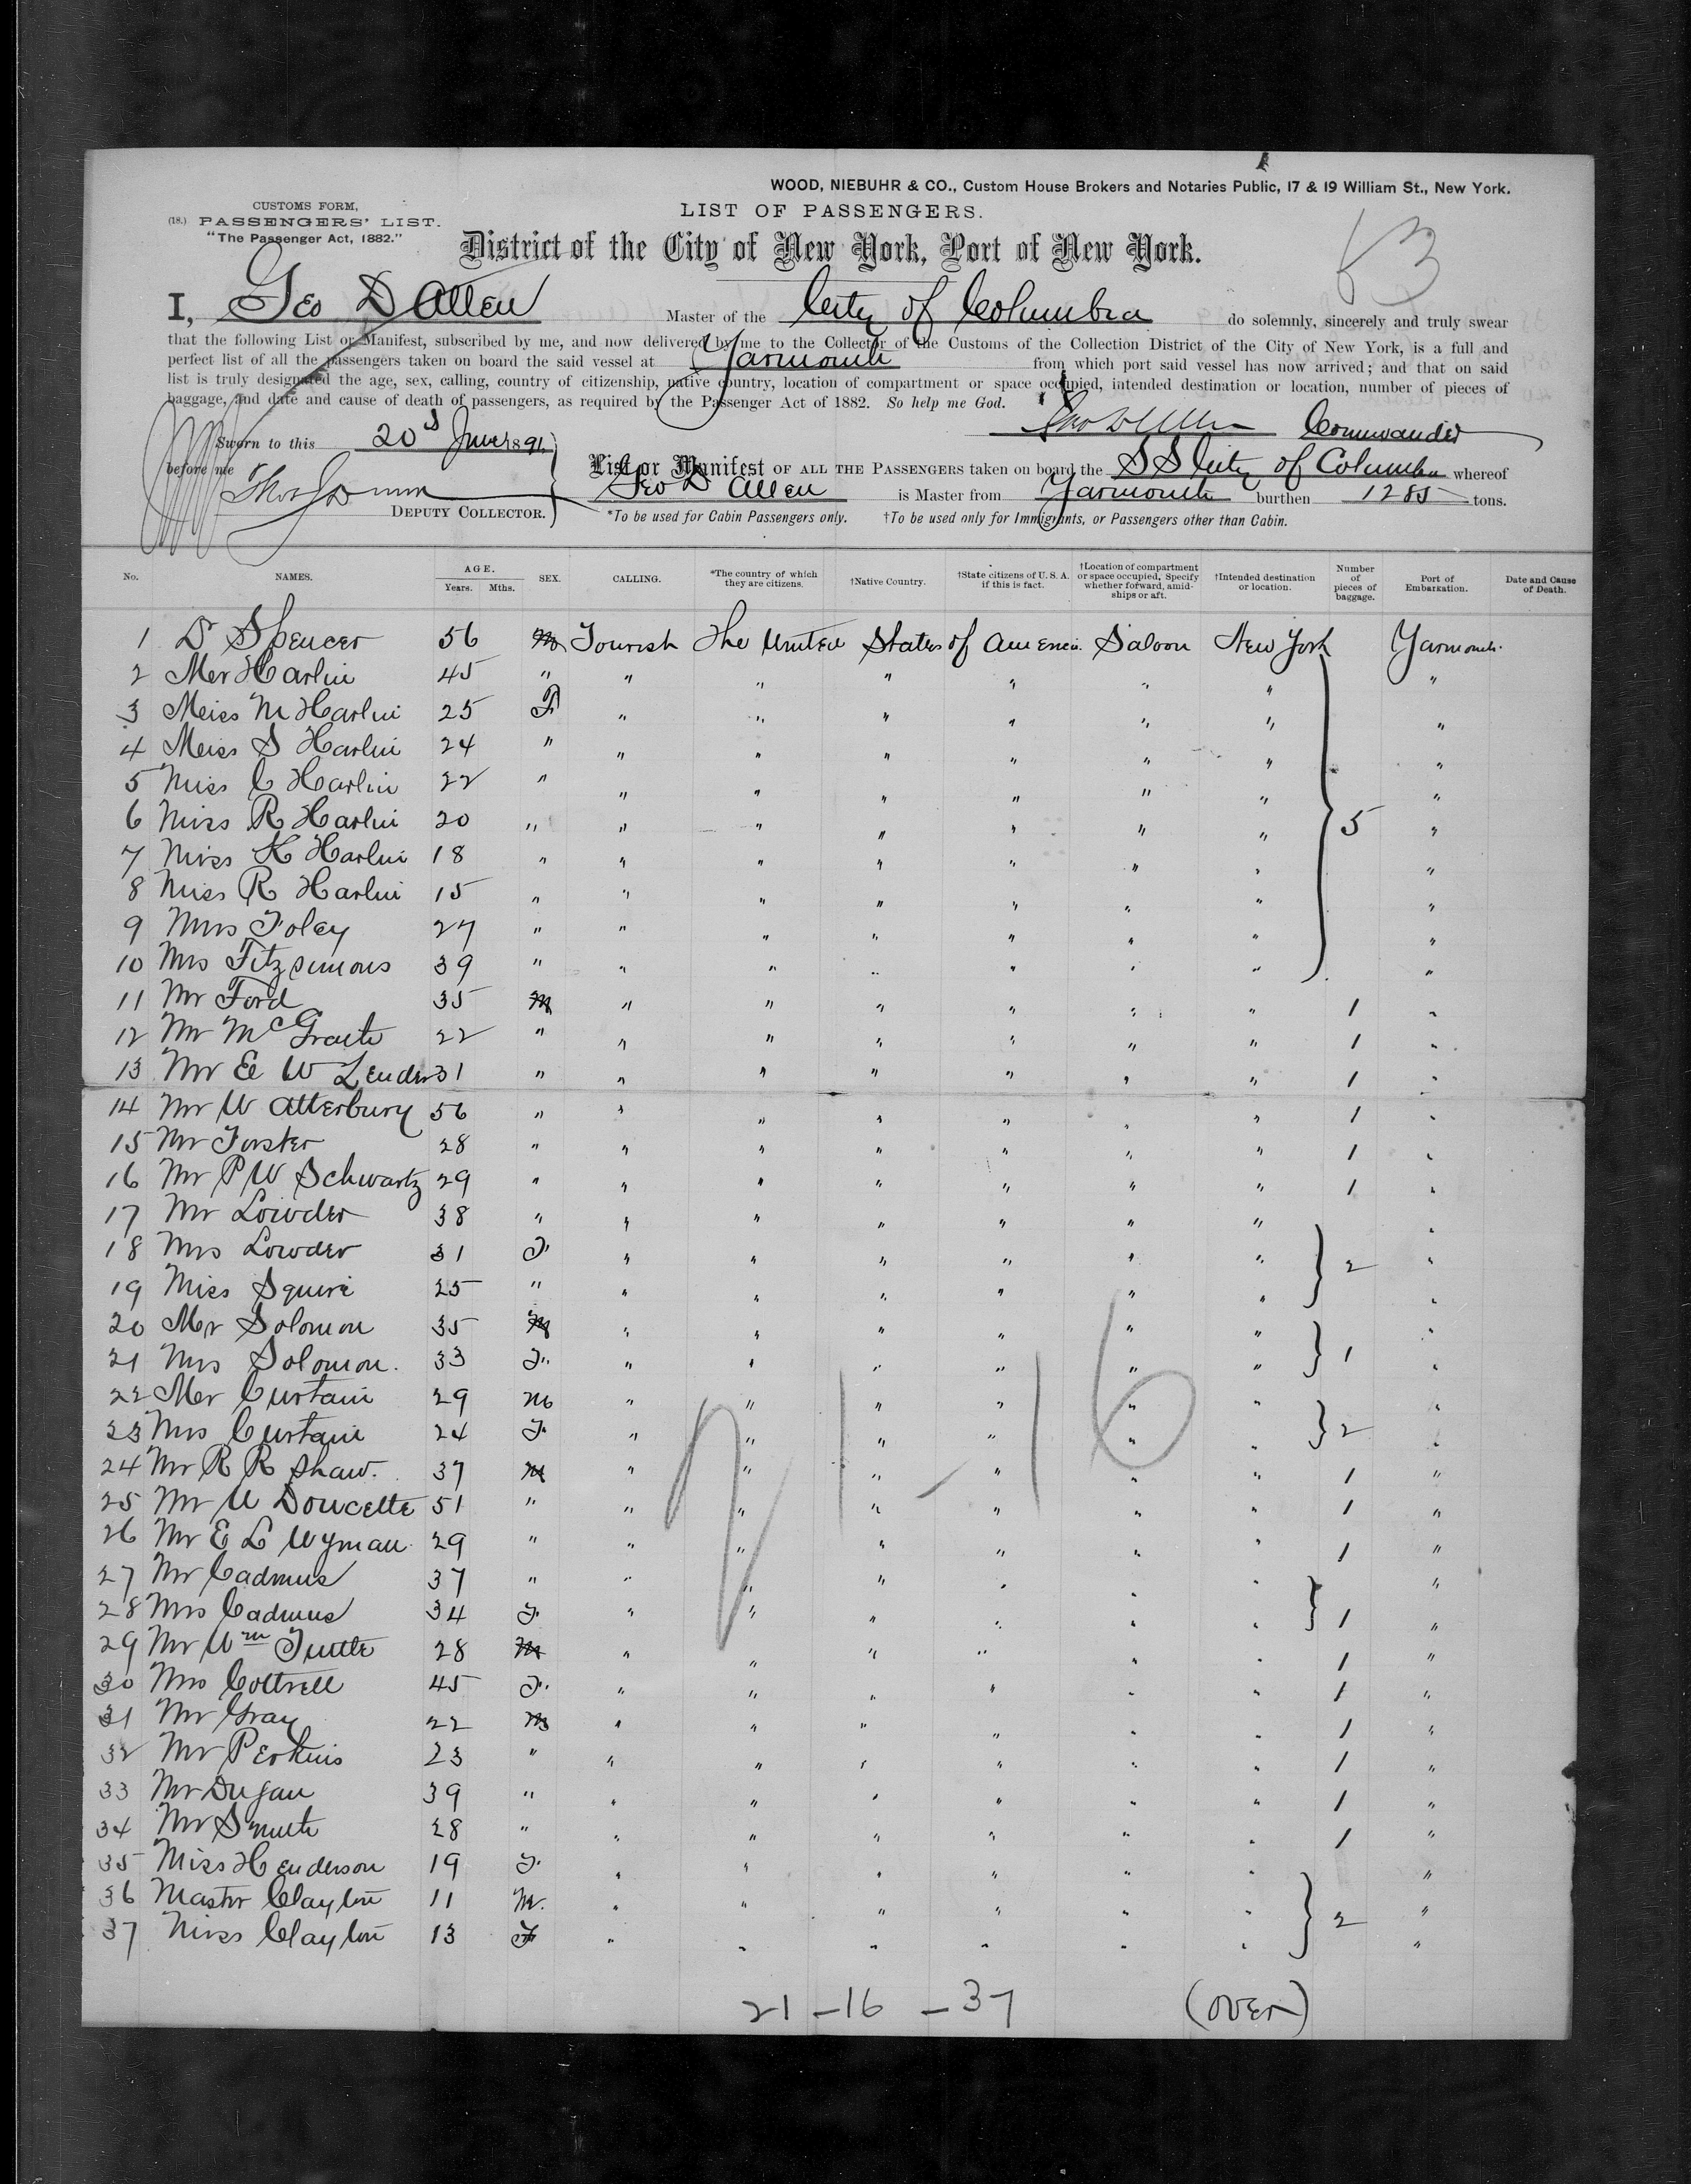 WOOD, NIEBUHR & CO., Custom House Brokers and Notaries Public, 17 & 19 William St., New York.
CUSTOMS FORM,
(18.) PASSENGERS' LIST.
"The Passenger Act, 1882."
LIST OF PASSENGERS.
District of the City of New York, Port of New York.
I, Geo D Allen Master of the City of Columbia do solemnly, sincerely and truly swear
that the following List or Manifest, subscribed by me, and now delivered by me to the Collector of the Customs of the Collection District of the City of New York, is a full and
perfect list of all the passengers taken on board the said vessel at Yarmouth from which port said vessel has now arrived; and that on said
list is truly designated the age, sex, calling, country of citizenship, native country, location of compartment or space occupied, intended destination or location, number of pieces of
baggage, and date and cause of death of passengers, as required by the Passenger Act of 1882. So help me God.
Geo D Allen Commander
Sworn to this 20 June 1891
before me
DEPUTY COLLECTOR.
List or Manifest OF ALL THE PASSENGERS taken on board the SS City of Columbia whereof
Geo D Allen is Master from Yarmouth burthen 1285 tons.
*To be used for Cabin Passengers only. †To be used only for Immigrants, or Passengers other than Cabin.
No. NAMES. AGE. Years. Mths. SEX. CALLING. *The country of which they are citizens. †Native Country. †State citizens of U.S.A. if this is fact. †Location of compartment or space occupied, Specify whether forward, amidships or aft. †Intended destination or location. Number of pieces of baggage. Port of Embarkation. Date and Cause of Death.
1 D Spencer 56 M Tourish The United States of America Saloon New York Yarmouth
2 Mr Harlin 45 " " " " " " " "
3 Miss M Harlin 25 F " " " " " " "
4 Miss S Harlin 24 " " " " " " " "
5 Miss C Harlin 22 " " " " " " " "
6 Miss R Harlin 20 " " " " " " " 5 "
7 Miss K Harlin 18 " " " " " " " "
8 Miss R Harlin 15 " " " " " " " "
9 Mrs Foley 27 " " " " " " " "
10 Mrs Fitzsimons 39 " " " " " " " "
11 Mr Ford 35 M " " " " " " 1 "
12 Mr McGrath 22 " " " " " " " 1 "
13 Mr E W Lender 31 " " " " " " " 1 "
14 Mr W Atterbury 56 " " " " " " " 1 "
15 Mr Forster 28 " " " " " " " 1 "
16 Mr P W Schwartz 29 " " " " " " " 1 "
17 Mr Lowder 38 " " " " " " " "
18 Mrs Lowder 31 F " " " " " " 2 "
19 Miss Squire 25 " " " " " " " "
20 Mr Solomon 35 M " " " " " " "
21 Mrs Solomon. 33 F " " " " " " 1 "
22 Mr Curtain 29 M " " " " " " "
23 Mrs Curtain 24 F " " " " " " 2 "
24 Mr R R Shaw. 37 M " " " " " " 1 "
25 Mr U Doucette 51 " " " " " " " 1 "
26 Mr E L Wyman 29 " " " " " " " 1 "
27 Mr Cadmus 37 " " " " " " " "
28 Mrs Cadmus 34 F " " " " " " 1 "
29 Mr Wm Tuttle 28 M " " " " " " 1 "
30 Mrs Cottrell 45 F " " " " " " 1 "
31 Mr Gray 22 M " " " " " " 1 "
32 Mr Perkins 23 " " " " " " " 1 "
33 Mr Dugan 39 " " " " " " " 1 "
34 Mr Smith 28 " " " " " " " 1 "
35 Miss Henderson 19 F " " " " " " "
36 Master Clayton 11 M. " " " " " " "
37 Miss Clayton 13 F " " " " " " 2 "
21 - 16 - 37 (OVER)